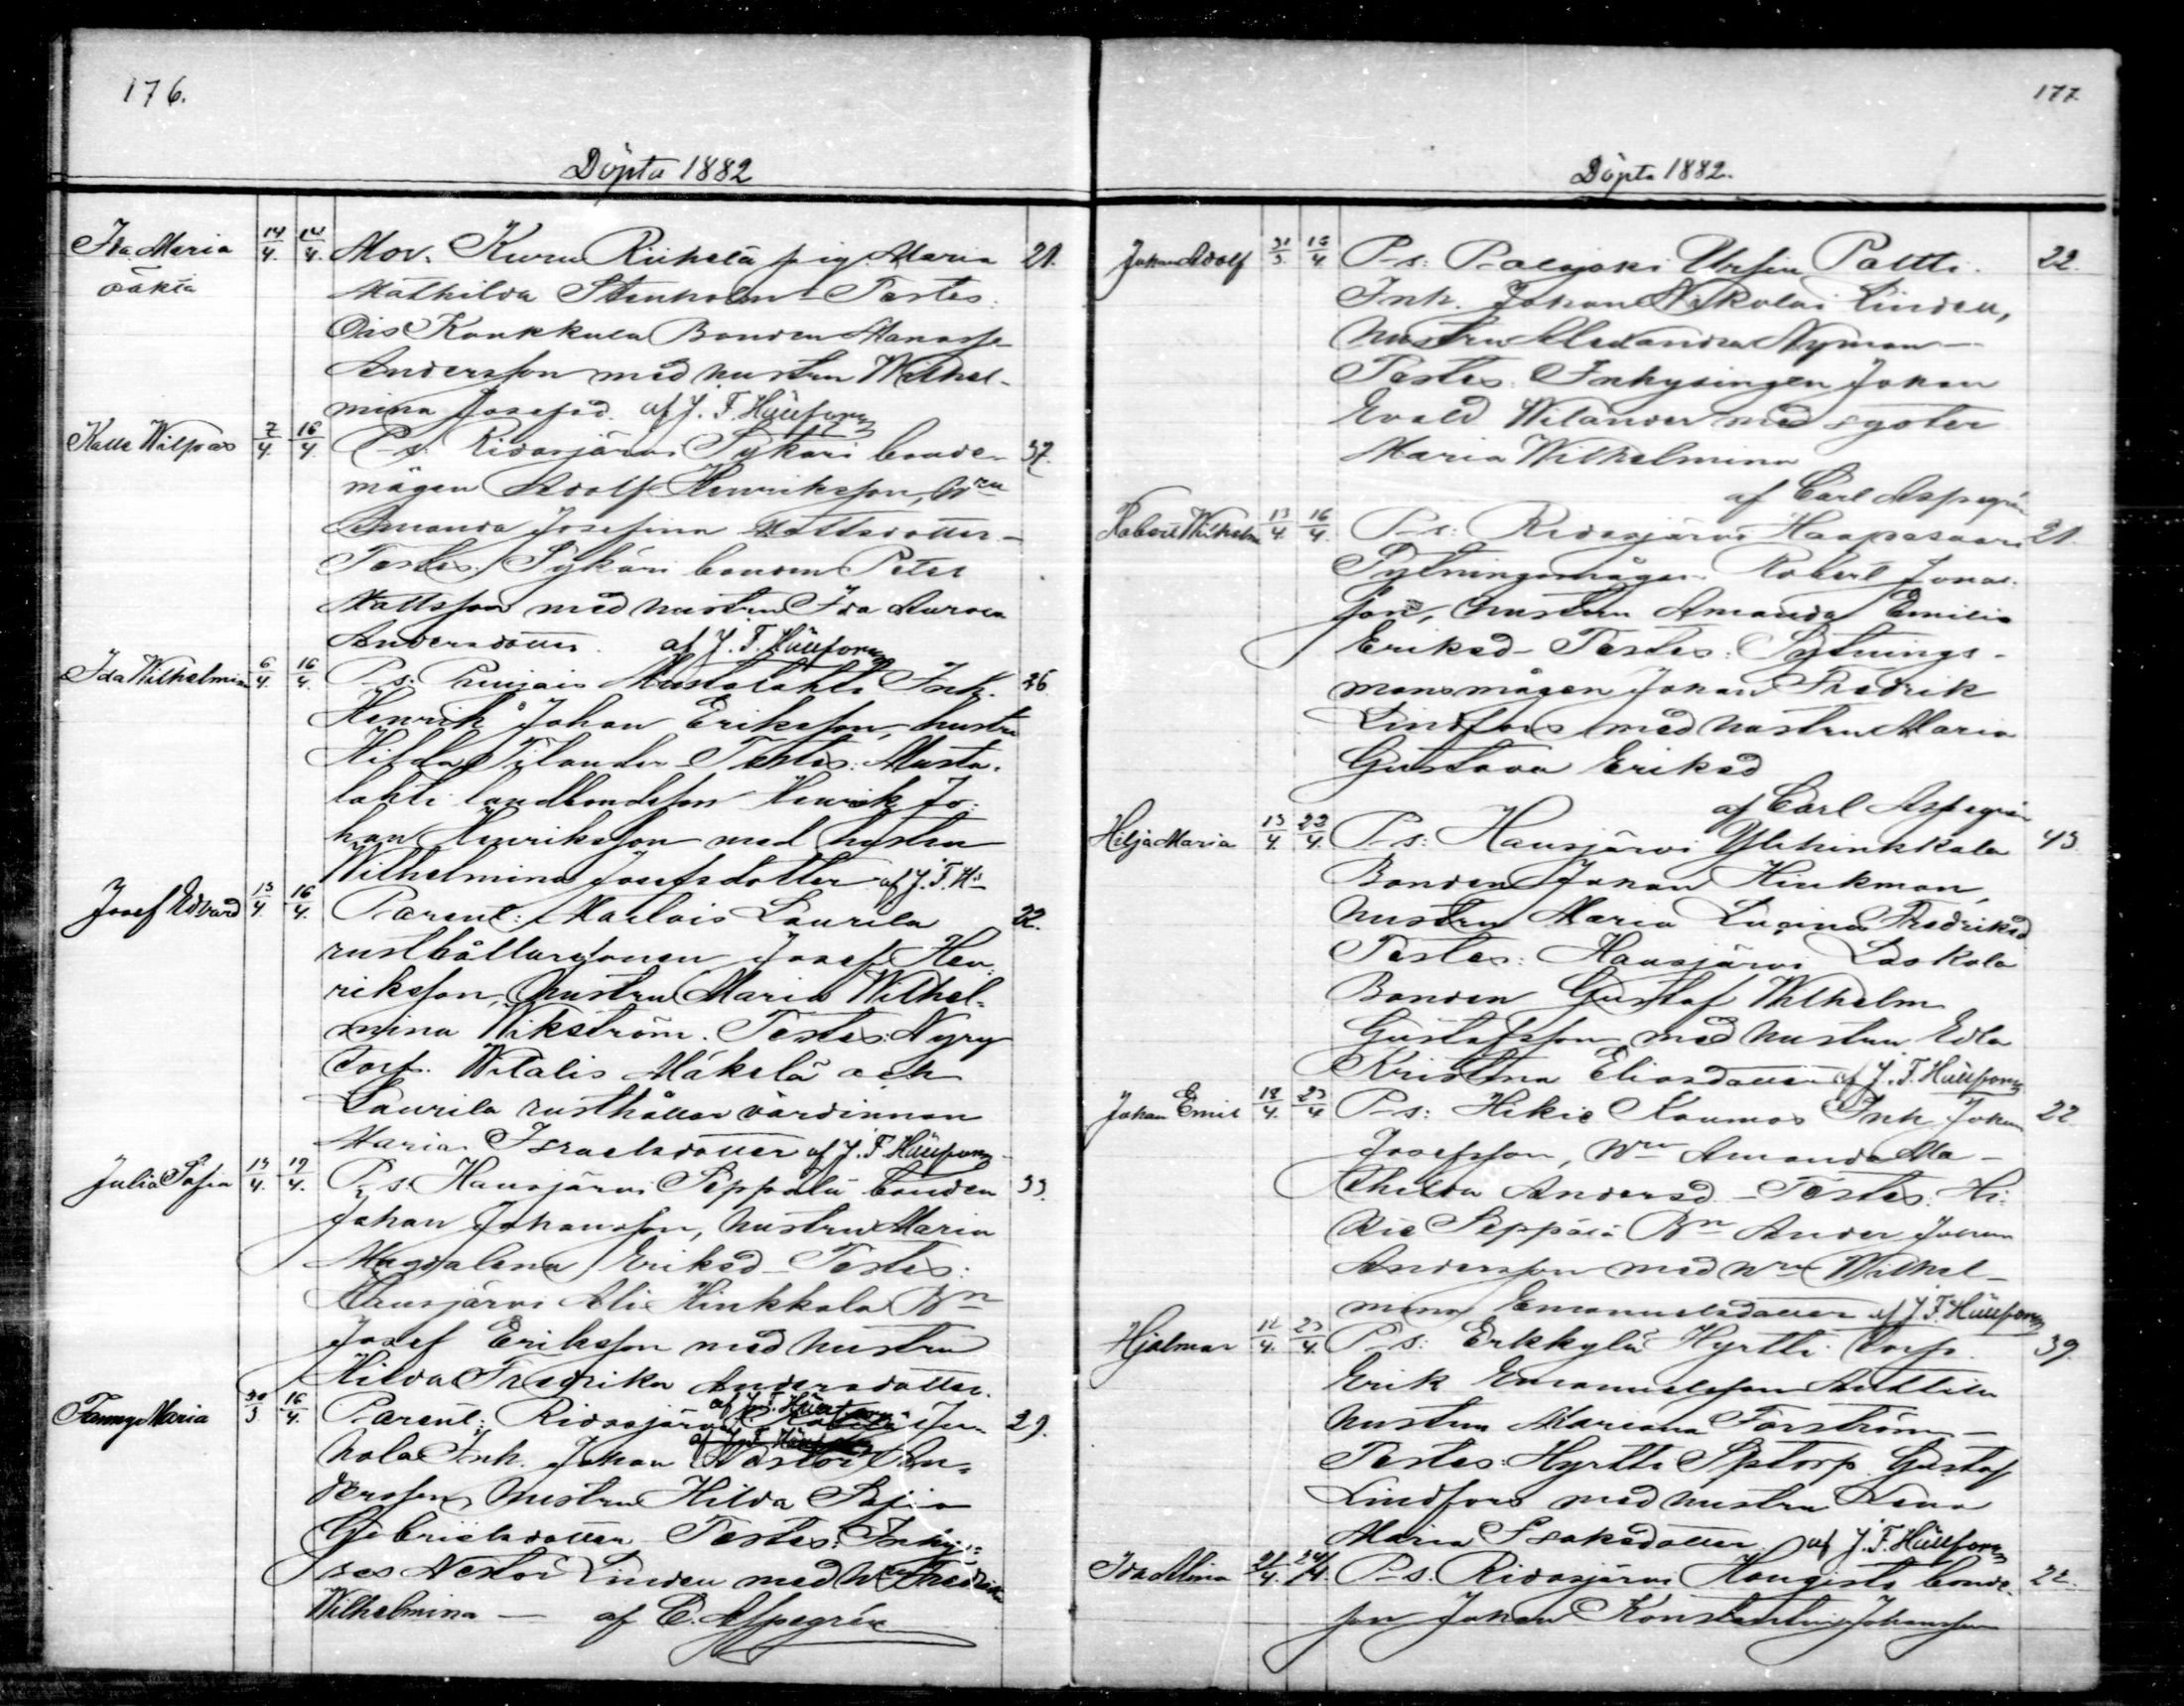 176.
Döpta 1882
Ida Maria 14/4. 14/4. Mor. Kuru Riihelä pig. Maria 21.
oäkta Mathilda Stenholm Testes:
Ois Kaukkula Bonden Manasse
Andersson med hustru Wilhel-
mina Josefsd. af J. F. Hällfors
Kalle Wilpas 7/4. 16/4. P-s: Ridasjärvi Sykäri bonde- 37.
mågen Adolf Henriksson, hru
Amanda Josefina Mattsdotter -
Testes: Sykäri bonden Peter
Mattsson med hustru Ida Aurora
Andersdotter. af J. F. Hällfors
Ida Wilhelmina 6/4. 16/4. P-s: Puujais Mustalahti Inh. 26.
Henrik Johan Eriksson, hustru
Hilda Tilander Testes: Musta-
lahti landbondeson Henrik Jo-
han Henriksson med hustru
Wilhelmina Josefsdotter af J. F. H-s
Josef Edvard 13/4. 16/4. Parent: Karlois Laurila 22.
rusthållaresonen Josef Hen-
riksson, hustru Maria Wilhel-
mina Wikström. Testes: Nyry
torp. Witalis Mäkelä och
Laurila rusthållar värdinnan
Maria Israelsdotter af J. F. Hällfors
Julia Sofia 13/4. 19/4. P-s: Hausjärvi Seppälä bonden 33.
Johan Johansson, hustru Maria
Magdalena Eriksd. Testes:
Hausjärvi Ali Hinkkala Bn
Josef Eriksson med hustru
Hilda Fredrika Andersdotter.
af J. F. Hällfors
Fanny Maria 30/3 16/4. Parent: Ridasjärvi Jun- 29.
nola Inh. Johan Nestor An-
dersson, hustru Hilda Sofia
Gabrielsdotter Testes: Inhy-
ses Nestor Linden med hru Fredrika
Wilhelmina — af C. Aspegrén
177.
Döpta 1882.
Johan Adolf 31/3. 15/4 P-s: Palojoki Ursin Paltti. 22.
Inh. Johan Nikolai Linden,
hustru Alexandra Nyman —
Testes: Inhysingen Johan
Evald Wilander med syster
Maria Wilhelmina
af Carl Aspegrén
Robert Wilhelm 13/4. 16/4. P-s: Ridasjärvi Haapasaari 21.
Sytningsmågen Robert Jonas-
son, hustru Amanda Emilia
Eriksd- Testes: Sytnings-
mansmågen Johan Fredrik
Lindfors med hustru Maria
Gustava Eriksd
af Carl Aspegrén
Hilja Maria 13/4. 22/4. P-s: Hausjärvi Ylihinkkala 43.
Bonden Johan Hinkman,
hustru Maria Lucina Fredriksd
Testes: Hausjärvi Laskala
Bonden Gustaf Wilhelm
Gustafsson med hustru Edla
Kristina Eliasdotter af J. F. Hällfors
Johan Emil 18/4. 23/4 P-s: Hikie Kaumos Inh. Johan 22
Josefsson, hru Amanda Ma-
thilda Andersd - Testes: Hi-
kie Seppälä Bn Ander Johan
Andersson med hru Wilhel-
mina Emanuelsdotter af J. F. Hällfors
Hjalmar 12/4. 23/4. P-s: Erkkylä Hyrtti torp. 39.
Erik Emanuelsson Anttila
hustru Mariana Forström —
Testes: Hyrtti Sptorp. Gustaf
Lindfors med hustru Lena
Maria Isaksdotter. af J. F. Hällfors
Ida Alina 21/4. 24/4. P-s. Ridasjärvi Hongisto bonde- 22.
son Johan Konstantin Johansson